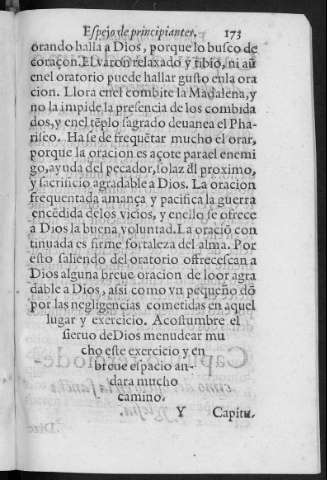 Espejo de principiantes. 173
orando halla a Dios, porque lo busco de
coraçon. El varon relaxado y tibio, ni aũ
enel oratorio puede hallar gusto enla ora
cion. Llora enel combite la Madalena, y
no la impide la presencia de los combida
dos, y enel tẽplo sagrado deuanea el Pha-
riseo. Ha se de frequẽtar mucho el orar,
porque la oracion es açote parael enemi
go, ayuda del pecador, solaz dl proximo,
y sacrificio agradable a Dios. La oracion
frequentada amança y pacifica la guerra
encẽdida delos vicios, y enello se ofrece
a Dios la buena voluntad. La oraciõ con
tinuada es firme fortaleza del alma. Por
esto saliendo del oratorio offrecescan a
Dios alguna breue oracion de loor agra
dable a Dios, assi como vn pequeño dõ
por las negligencias cometidas en aquel
lugar y exercicio. Acostumbre el
sieruo deDios menudear mu
cho este exercicio y en
breue espacio an-
dara mucho
camino.
Y Capitu.